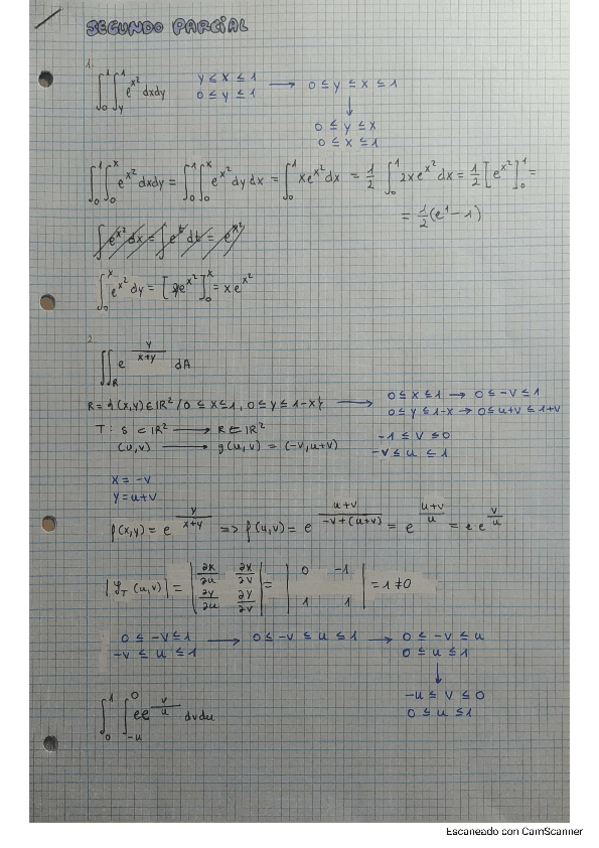 SEGUNDO PARCIAL
1.
∫₀¹ ∫_y¹ e^{x²} dxdy   y ≤ x ≤ 1   →   0 ≤ y ≤ x ≤ 1
0 ≤ y ≤ 1   ↓
0 ≤ y ≤ x
0 ≤ x ≤ 1
∫₀¹ ∫₀ˣ e^{x²} dxdy = ∫₀¹ ∫₀ˣ e^{x²} dy dx = ∫₀¹ x e^{x²} dx = 1/2 ∫₀¹ 2x e^{x²} dx = 1/2 [e^{x²}]₀¹ =
= 1/2 (e¹ - 1)
∫ e^{x²} dx = ∫ e^t dt = e^{x²}
∫₀ˣ e^{x²} dy = [y e^{x²}]₀ˣ = x e^{x²}
2.
∬_R e^{y/(x+y)} dA
R = {(x,y) ∈ ℝ² / 0 ≤ x ≤ 1, 0 ≤ y ≤ 1-x}   →   0 ≤ x ≤ 1 → 0 ≤ -v ≤ 1
0 ≤ y ≤ 1-x → 0 ≤ u+v ≤ 1+v
T: S ⊂ ℝ² → R ⊂ ℝ²
-1 ≤ v ≤ 0
(u,v) → g(u,v) = (-v, u+v)
-v ≤ u ≤ 1
x = -v
y = u+v
f(x,y) = e^{y/(x+y)} => f(u,v) = e^{(u+v)/(-v+(u+v))} = e^{(u+v)/u} = e e^{v/u}
|J_T (u,v)| = |∂x/∂u ∂x/∂v; ∂y/∂u ∂y/∂v| = |0 -1; 1 1| = 1 ≠ 0
0 ≤ -v ≤ 1   →   0 ≤ -v ≤ u ≤ 1   →   0 ≤ -v ≤ u
-v ≤ u ≤ 1   0 ≤ u ≤ 1
↓
-u ≤ v ≤ 0
0 ≤ u ≤ 1
∫₀¹ ∫_{-u}⁰ e e^{v/u} dvdu
Escaneado con CamScanner